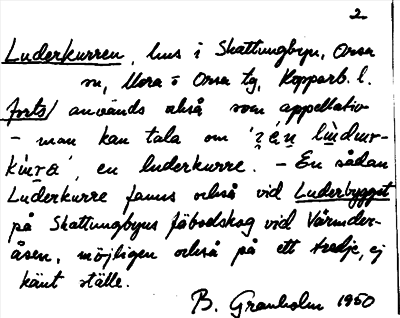 2.
Luderkurren, hus i Skattungbyn, Orsa
sn, Mora o Orsa tg, Kopparb. l.
forts/ används också som appellativ
– man kan tala om 'ẹ́n lùdur-
kùra', en luderkurre. – En sådan
Luderkurre fanns också vid Luderbygget
på Skattungbyns fäbodskog vid Vårinder-
åsen, möjligen också på ett tredje, ej
känt ställe.
B. Granholm 1950